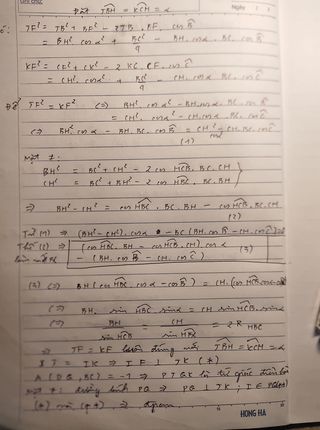 Đặt TBH = KCH = α
Ngày
TF² = TB² + BF² - 2TB . BF . cos B
= BH² . cos α² + BC²/4 - BH . cos α . BC . cos B
KF² = CK² + CF² - 2 KC . CF . cos C
= CH² . cos α² + BC²/4 - CH . cos α . BC . cos C
Để TF² = KF² ⇔ BH² . cos α² - BH . cos α . BC . cos B
= CH² . cos α² - CH . cos α . BC . cos C
⇔ BH² . cos α - BH . BC . cos B = CH² . cos α - CH . BC . cos C
(1)
Mặt ≠ :
BH² = BC² + CH² - 2 cos HCB . BC . CH
CH² = BC² + BH² - 2 cos HBC . BC . BH
⇒ BH² - CH² = cos HBC . BC . BH - cos HCB . BC . CH
(2)
Từ (1) ⇒ (BH² - CH²) . cos α - BC (BH . cos B - CH . cos C) = 0
(cos HBC . BH - cos HCB . CH) . cos α
- (BH . cos B - CH . cos C) (3)
(3) ⇔ BH (cos HBC . cos α - cos B) = CH . (cos HCB . cos α
⇔ BH . sin HBC . sin α = CH . sin HCB . sin α
⇔ BH / sin HCB = CH / sin HBC = 2R HBC
⇒ TF = KF luôn đúng với TBH = KCH = α
IT = IK ⇒ IF ⊥ TK (*)
A (DG, BC) = -1 ⇒ PTGK là tứ giác
đường kính PG ⇒ PG ⊥ TK ; I ∈ PG (**)
(*) và (**) ⇒ đpcm
HỒNG HÀ